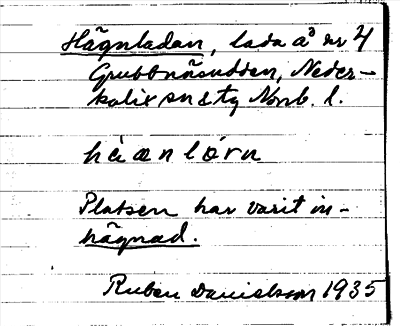 Hägnladan, lada å nr 4
Grubbnäsudden, Neder-
kalix sn & tg Norrb. l.
hàænlórn
Platsen har varit in-
hägnad.
Ruben Danielsson 1935